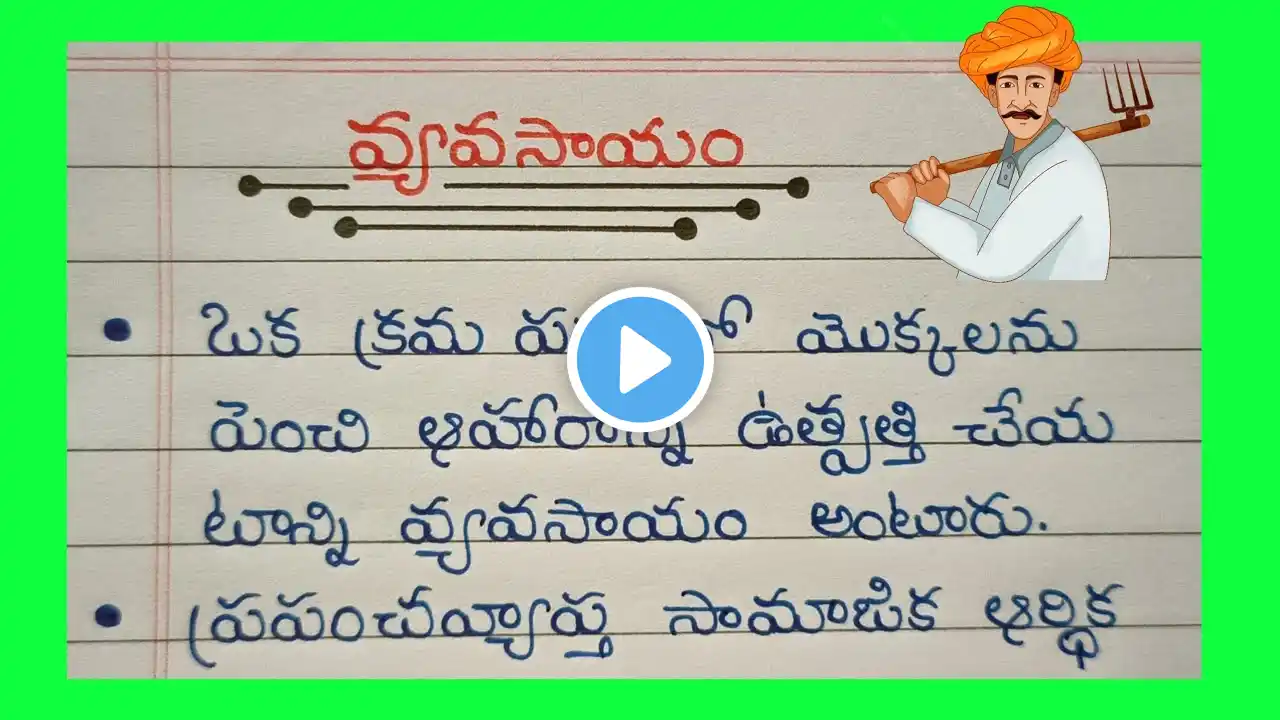 వ్యవసాయం
• ఒక క్రమ మొక్కలను
పెంచి ఆహారాన్ని ఉత్పత్తి చేయ
టాన్ని వ్యవసాయం అంటారు.
• ప్రపంచవ్యాప్త సామాజిక ఆర్థిక